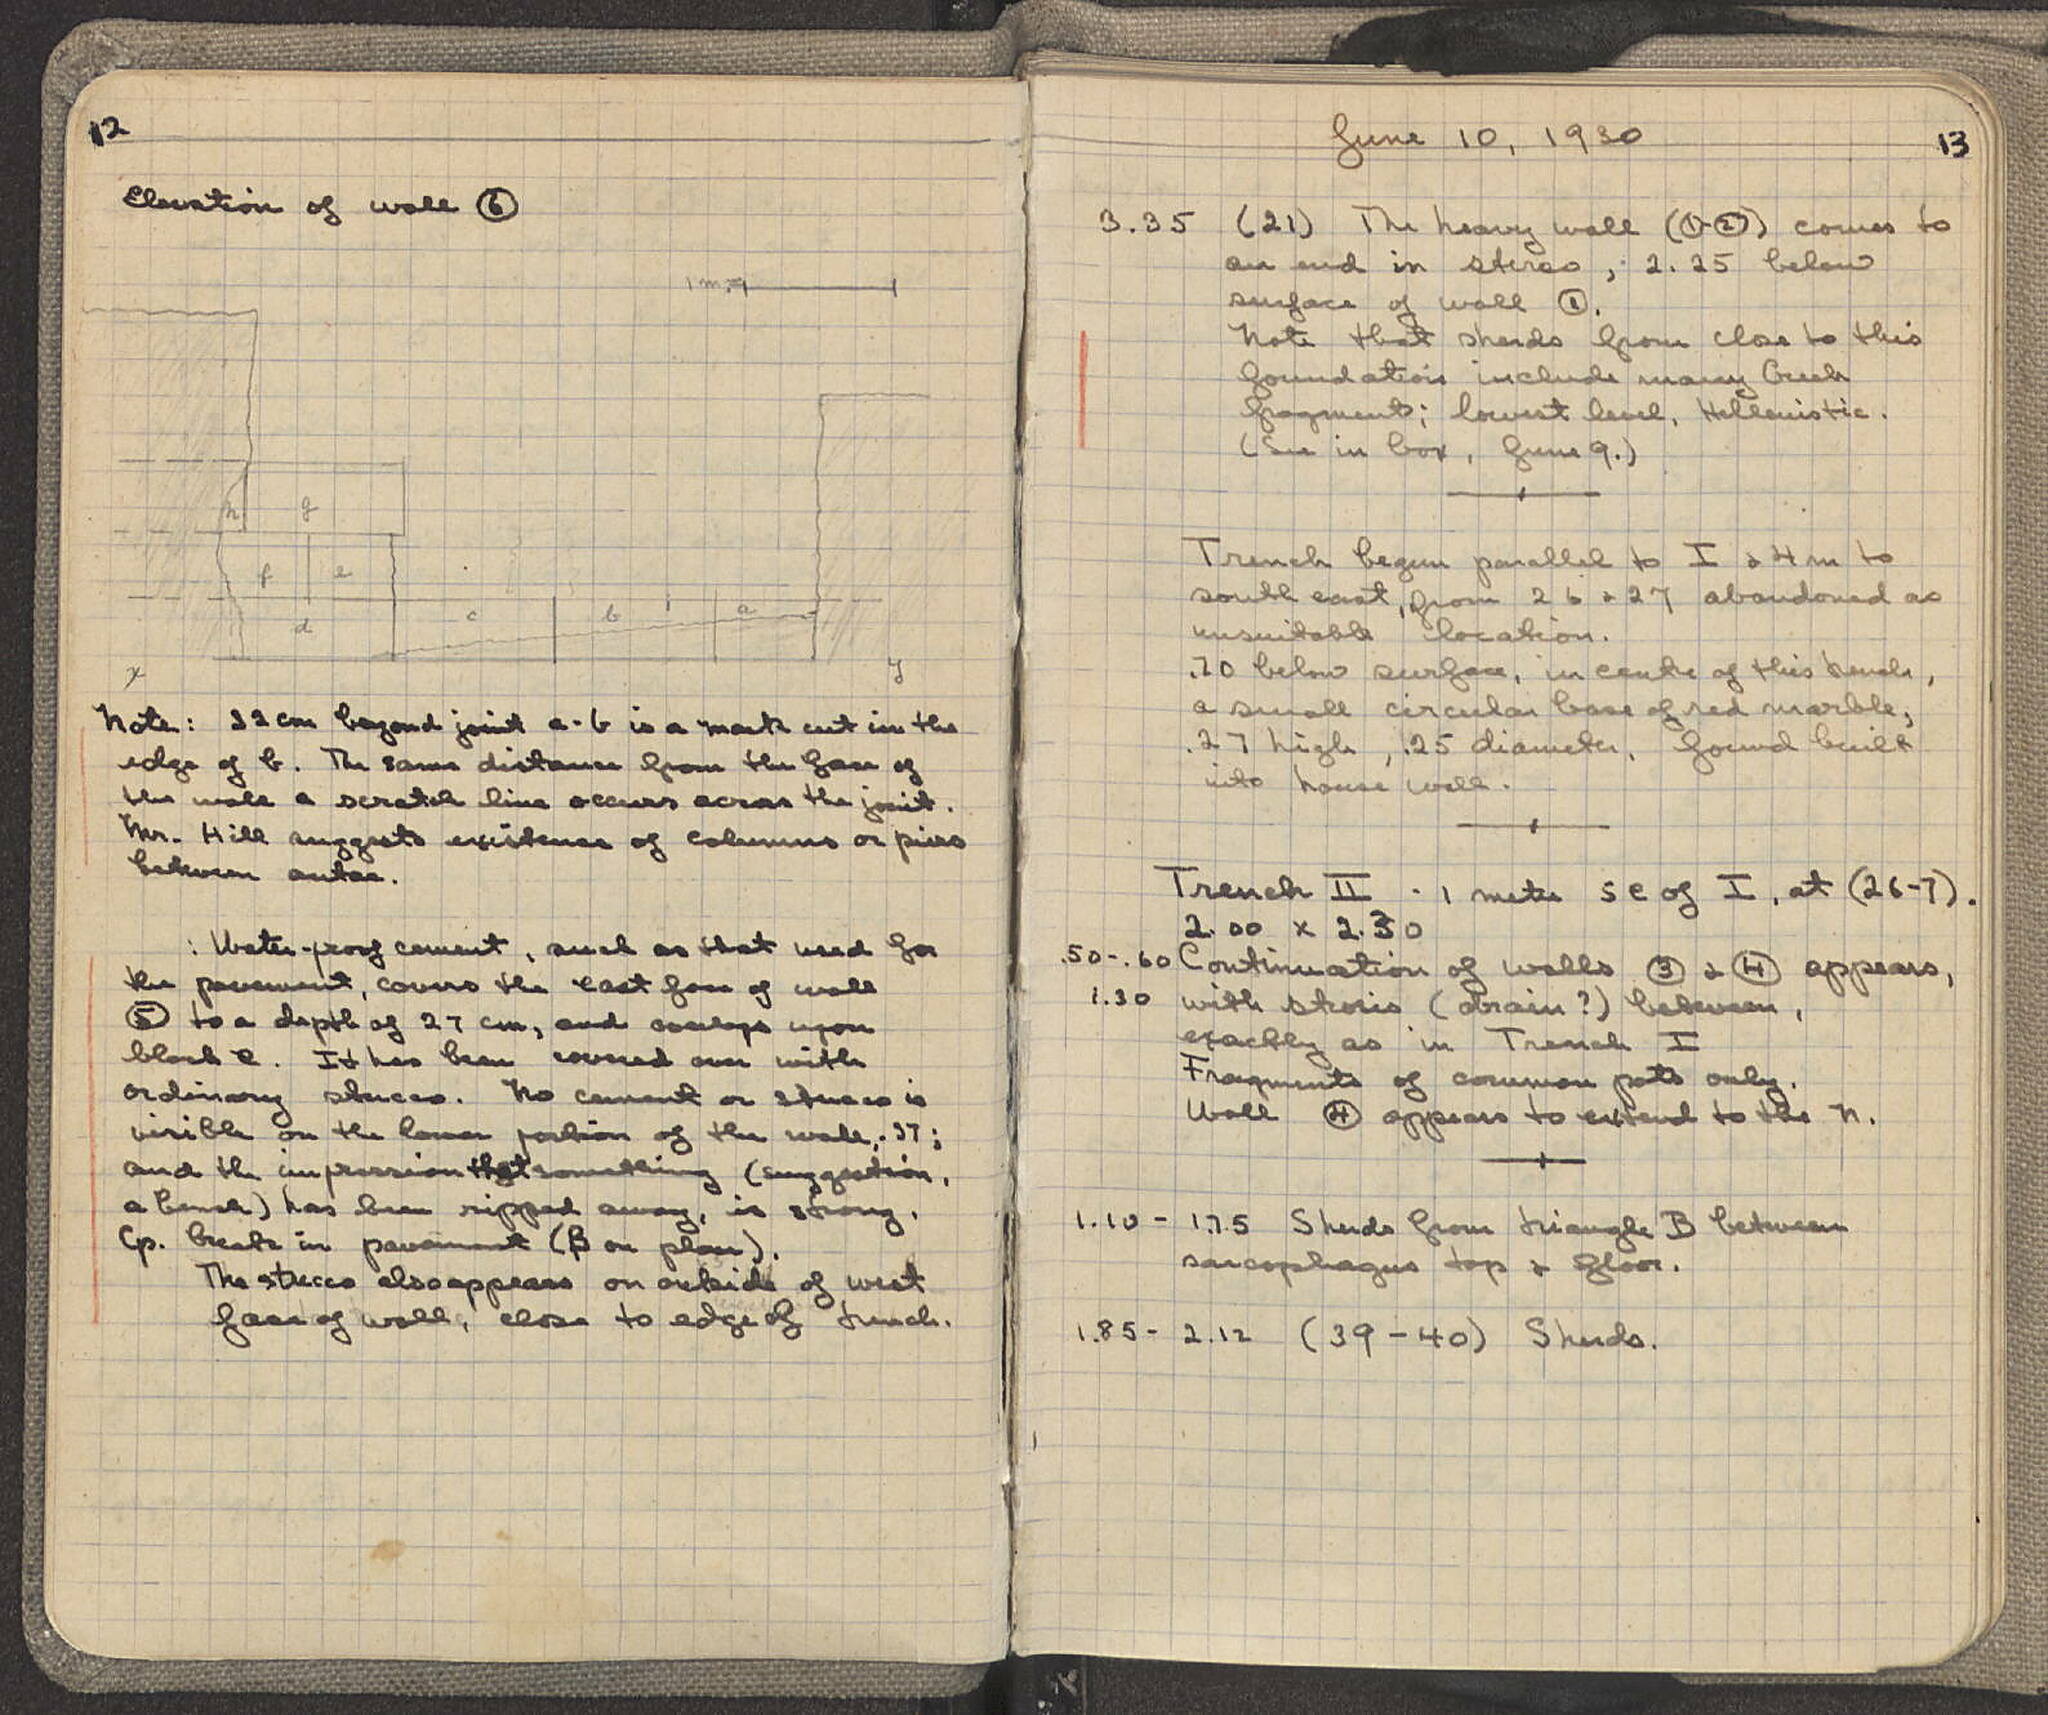 12
Elevation of wall ⑥
1 m.
h g
f e
d c b a
x y
Note: 22 cm beyond joint a-b is a mark cut in the
edge of b. The same distance from the face of
the wall a scratch line occurs across the joint.
Mr. Hill suggests existence of columns or piers
between antae.
: Water-proof cement, such as that used for
the pavement, covers the east face of wall
⑤ to a depth of 27 cm, and overlaps upon
block e. It has been covered over with
ordinary stucco. No cement or stucco is
visible on the lower portion of the wall, .37;
and the impression that something (suggestion,
a bench) has been ripped away, is strong.
Cp. break in pavement (β on plan).
The stucco also appears on outside of west
face of wall, close to edge of trench.
June 10, 1930
13
3.35 (21) The heavy wall (①-②) comes to
an end in stereo, 2.25 below
surface of wall ①.
Note that sherds from close to this
foundation include many Greek
fragments; lowest level, Hellenistic.
(See in box, June 9.)
Trench begun parallel to I & 4 m to
south east, from 26 & 27 abandoned as
unsuitable location.
.70 below surface, in centre of this trench,
a small circular base of red marble,
.27 high, .25 diameter, found built
into house wall.
Trench II - 1 metre SE of I, at (26-7).
2.00 x 2.30
.50-.60 Continuation of walls ③ & ④ appears,
1.30 with strosis (drain?) between,
exactly as in Trench I
Fragments of common pots only.
Wall ④ appears to extend to the N.
1.10 - 1.75 Sherds from triangle B between
sarcophagus top & floor.
1.85 - 2.12 (39-40) Sherds.